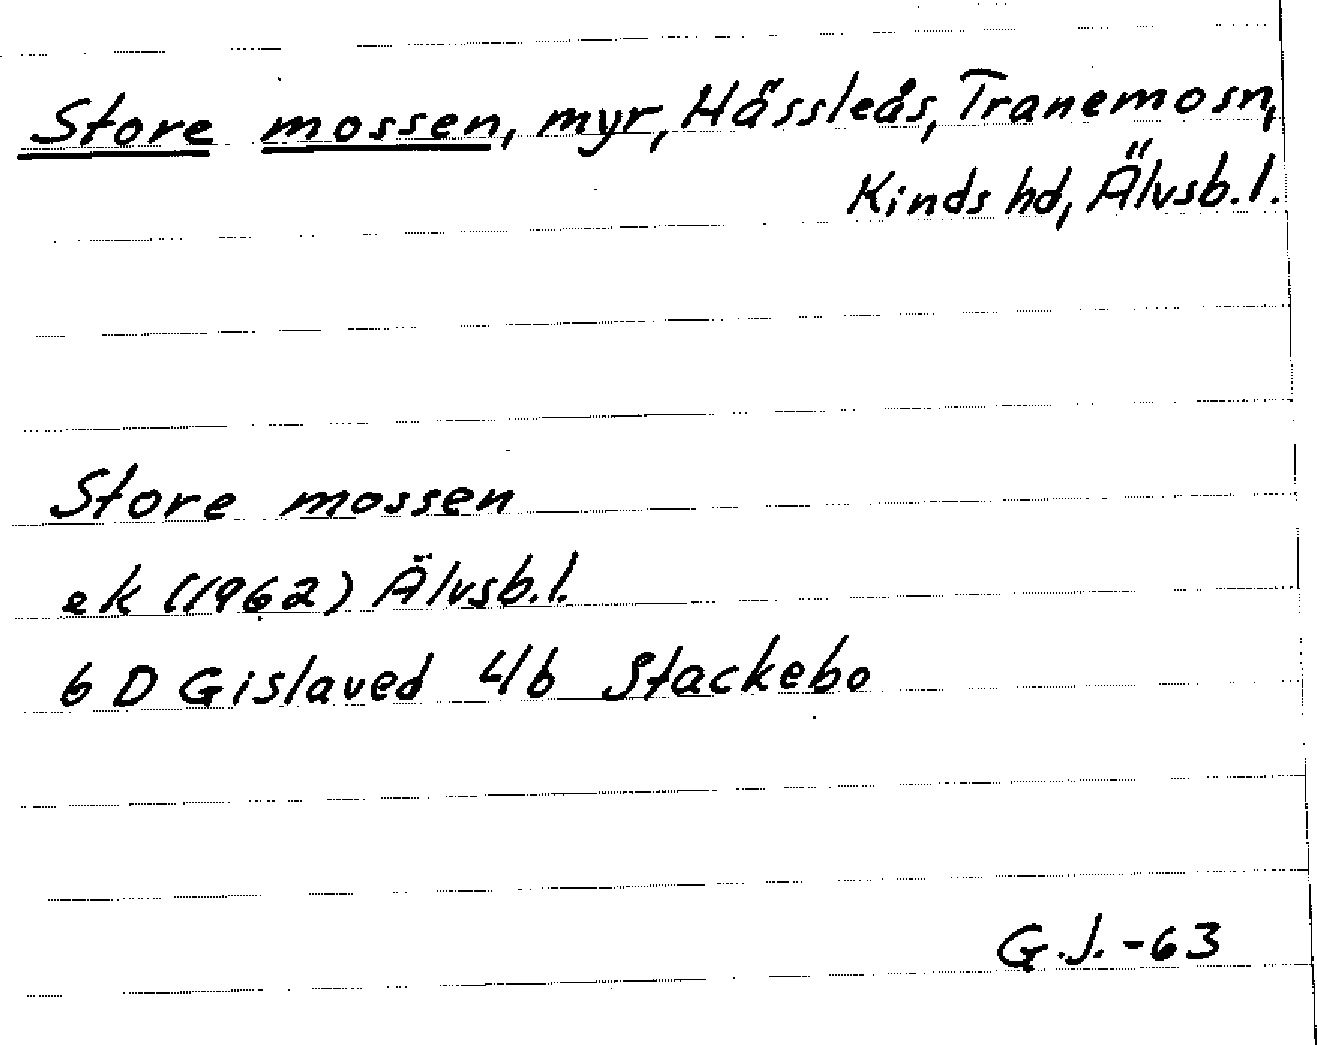 Store mossen, myr, Hässleås, Tranemosn,
Kinds hd, Älvsb. l.
Store mossen
ek (1962) Älvsb. l.
6 D Gislaved 4b Stackebo
G.J. -63